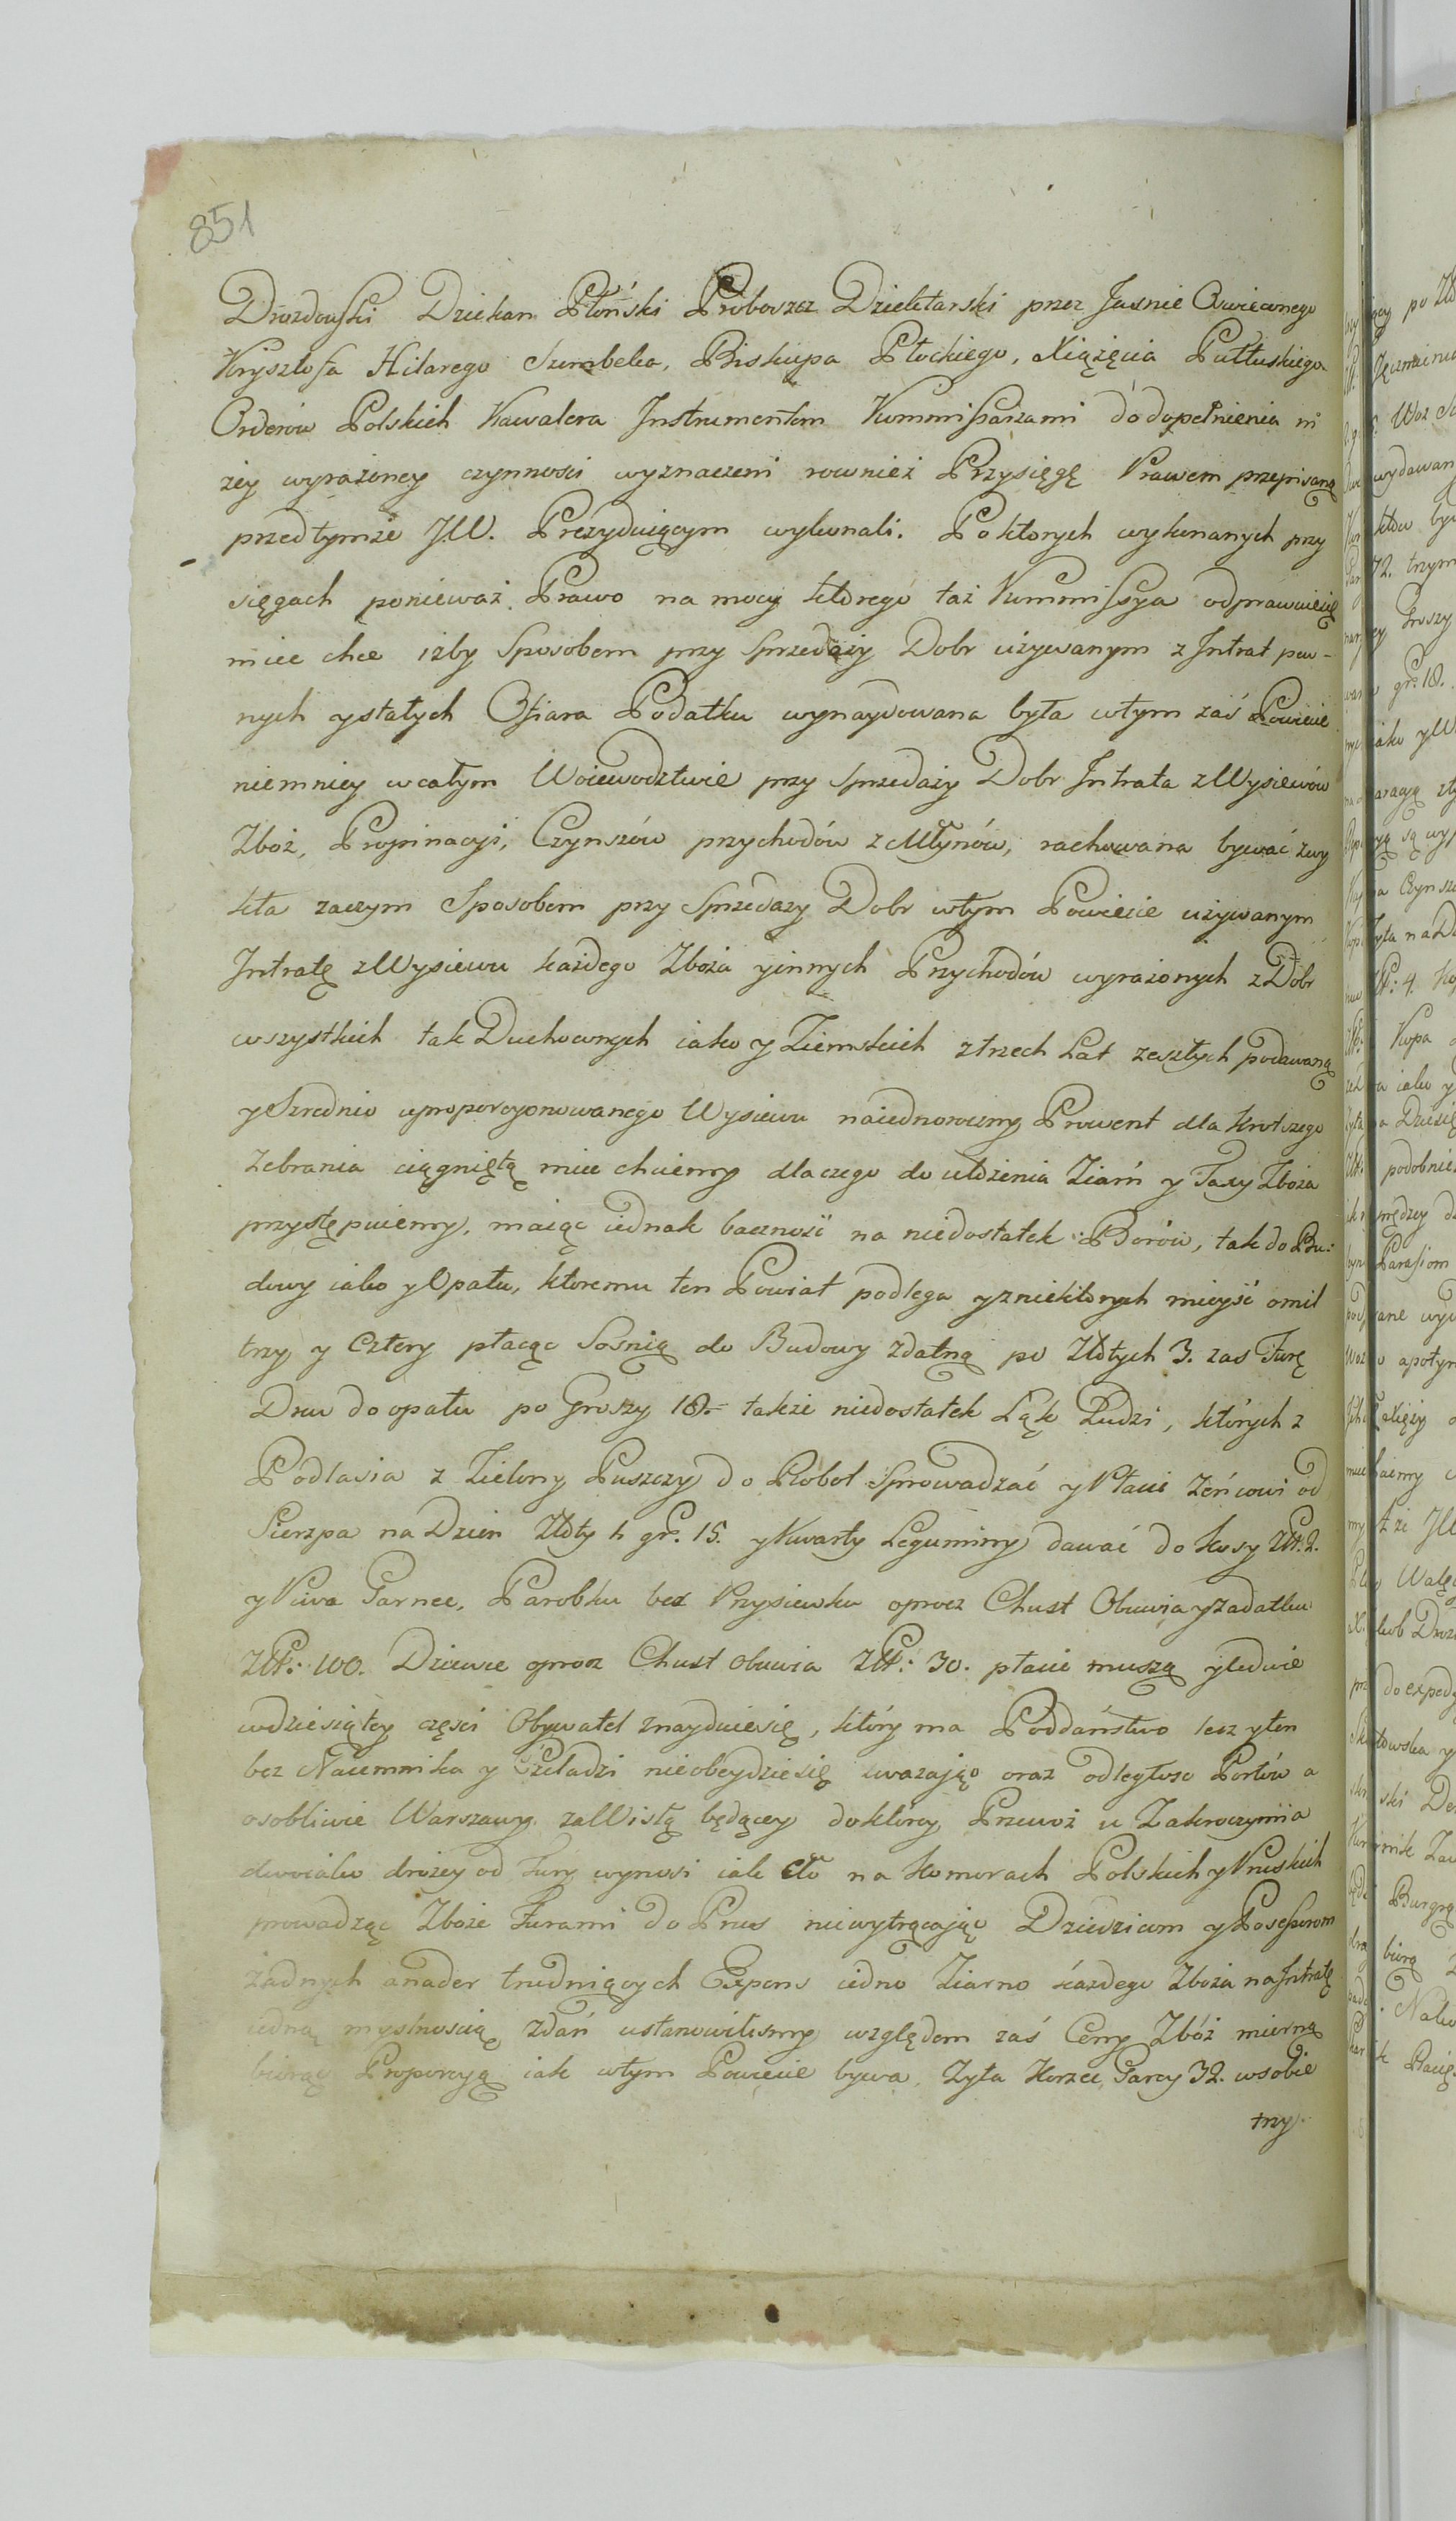 851
Drozdowski Dziekan Płoński Proboszcz Dziektarski przez Jasnie Oswieconego
Krysztofa Hilarego Szembeka, Biskupa Płockiego, Xiążęcia Pułtuskiego
Orderów Polskich Kawalera Instrumentem Kommissarzami do dopełnienia ni
żey wyrażoney czynnosci wyznaczeni rownież Przysięgę Prawem przepisaną
przedtymże JW. Prezyduiącym wykonali. Po ktorych wykonanych przy
sięgach ponieważ Prawo na mocy ktorego taż Kommissya odprawuiesię
miec chce iżby Sposobem przy Sprzedaży Dobr używanym z Intrat pew-
nych ystałych Ofiara Podatku wynaydowana była wtym zaś Powiecie
niemniey wcałym Woiewodztwie przy Sprzedaży Dobr Intrata zWysiewów
Zboż, Propinacyi, Czynszów przychodów zMłynów, rachowana bywać zwy
kła zaczym Sposobem przy Sprzedaży Dobr wtym Powiecie używanym
Intratę zWysiewu każdego Zboża yinnych Przychodów wyrażonych zDobr
wszystkich tak Duchownych iako y Ziemskich ztrzech Lat zeszłych podawaną
ySzrednio uproporcyonowanego Wysiewu naiednoroczny Prowent dla krotszego
Zebrania ciągniętą miec chcemy dlaczego do ułożenia Ziarń y Taxy Zboża
przystępuiemy, maiąc iednak baczność na niedostatek Borów, tak do Bu:
dowy iako yOpału, ktoremu ten Powiat podlega yzniektorych mieysć omil
trzy y Cztery płacąc Sosnią do Budowy zdatną po Złotych 3. zas Furę
Drew do opału po Groszy 18. także niedostatek Łąk Ludzi, których z
Podlasia z Zielony Puszczy do Robot Sprowadzać yPłacic Zeńcowi od
Sierzpa na Dzien Złoty 1 gr. 15. yKwarty Leguminy dawać do Kosy Złt. 2.
yPiwa Garnec, Parobku bez Przysiewku oprocz Chust Obuwia yzadatku
Złt: 100. Dziewce oprocz Chust obuwia Złt: 30. płacic muszą yledwie
wdziesiątey części Obywatel znayduiesię, który ma Poddaństwo lecz yten
bez Naiemnika y Czeladzi nieobeydziesię uwazaiąc oraz odległosc Portów a
osobliwie Warszawy zaWisłą będącey doktórey Przewoż u Zakroczymia
dwoiako drożey od Fury wynosi iak Cło na Komorach Polskich yPruskich
prowadząc Zboże Furami do Prus niewytrącaiąc Dziedzicom yPossessorom
żadnych anader trudniących Expens iedno Ziarno każdego Zboża naIntratę
iedną myslnoscią zdań ustanowilismy względem zaś Ceny Zbóż mierną
biorąc Proporcyą iak wtym Powiecie bywa. Zyta Korzec Garcy 32. wsobie
trzy.